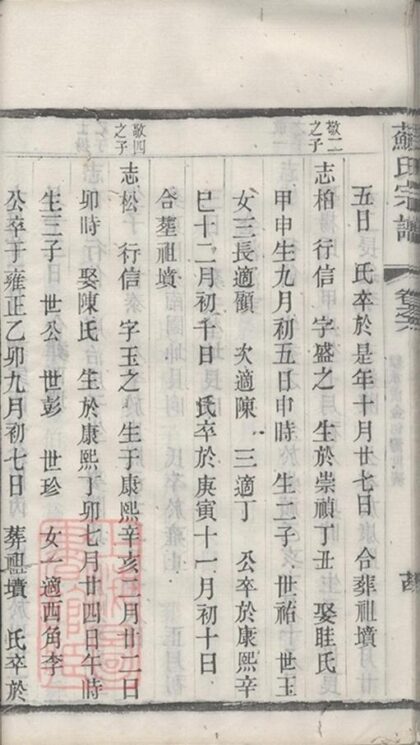 蘇氏宗譜
五日 氏卒於是年十月廿七日 合葬祖墳
敬二之子
志柏 行信 字盛之 生於崇禎丁丑 娶眭氏
甲申生九月初五日申時 生二子 世祐 世玉
女三長適顧 次適陳 三適丁 公卒於康熙辛
巳十二月初十日 氏卒於庚寅十一月初十日
合塟祖墳
敬四之子
志松 行信 字玉之 生于康熙辛亥二月廿二日
卯時 娶陳氏 生於康熙丁卯七月廿四日午時
生三子 世公 世彭 世珍 女一適西角李
公卒于雍正乙卯九月初七日 葬祖墳 氏卒於